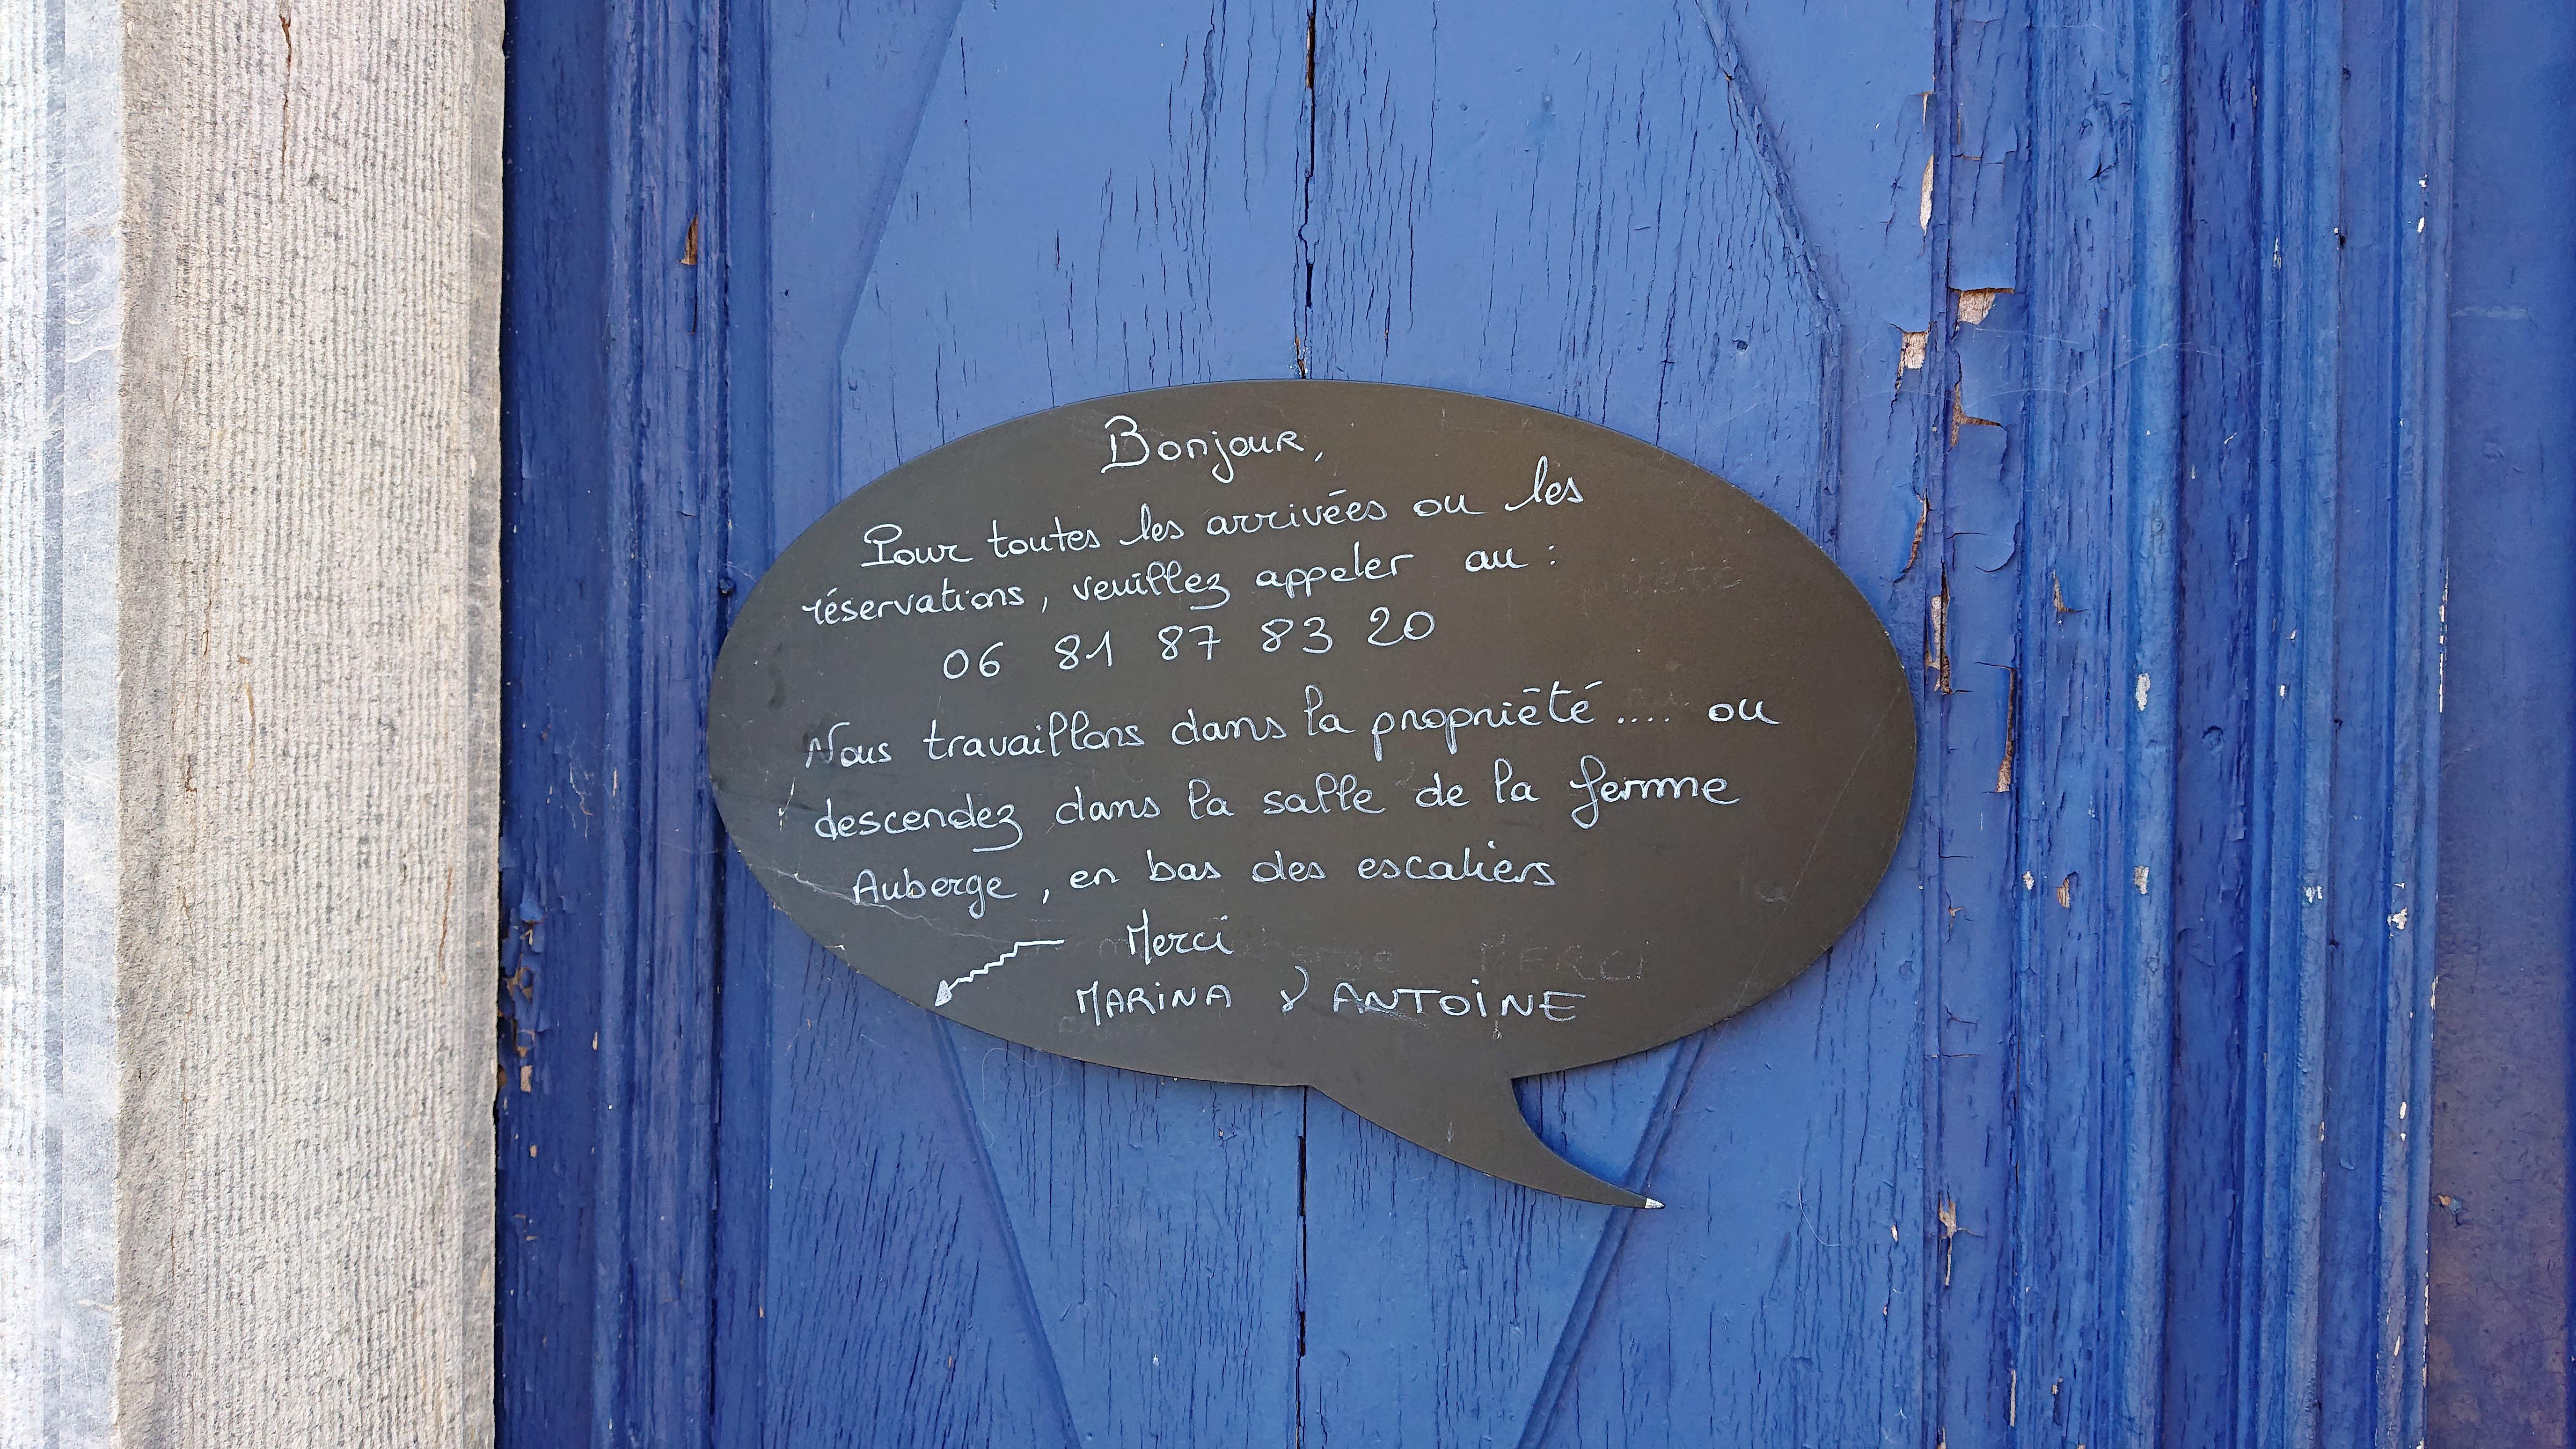 Bonjour,
Pour toutes les arrivées ou les
réservations, veuillez appeler au :
06 81 87 83 20
Nous travaillons dans la propriété .... ou
descendez dans la salle de la ferme
Auberge, en bas des escaliers
Merci
MARINA & ANTOINE